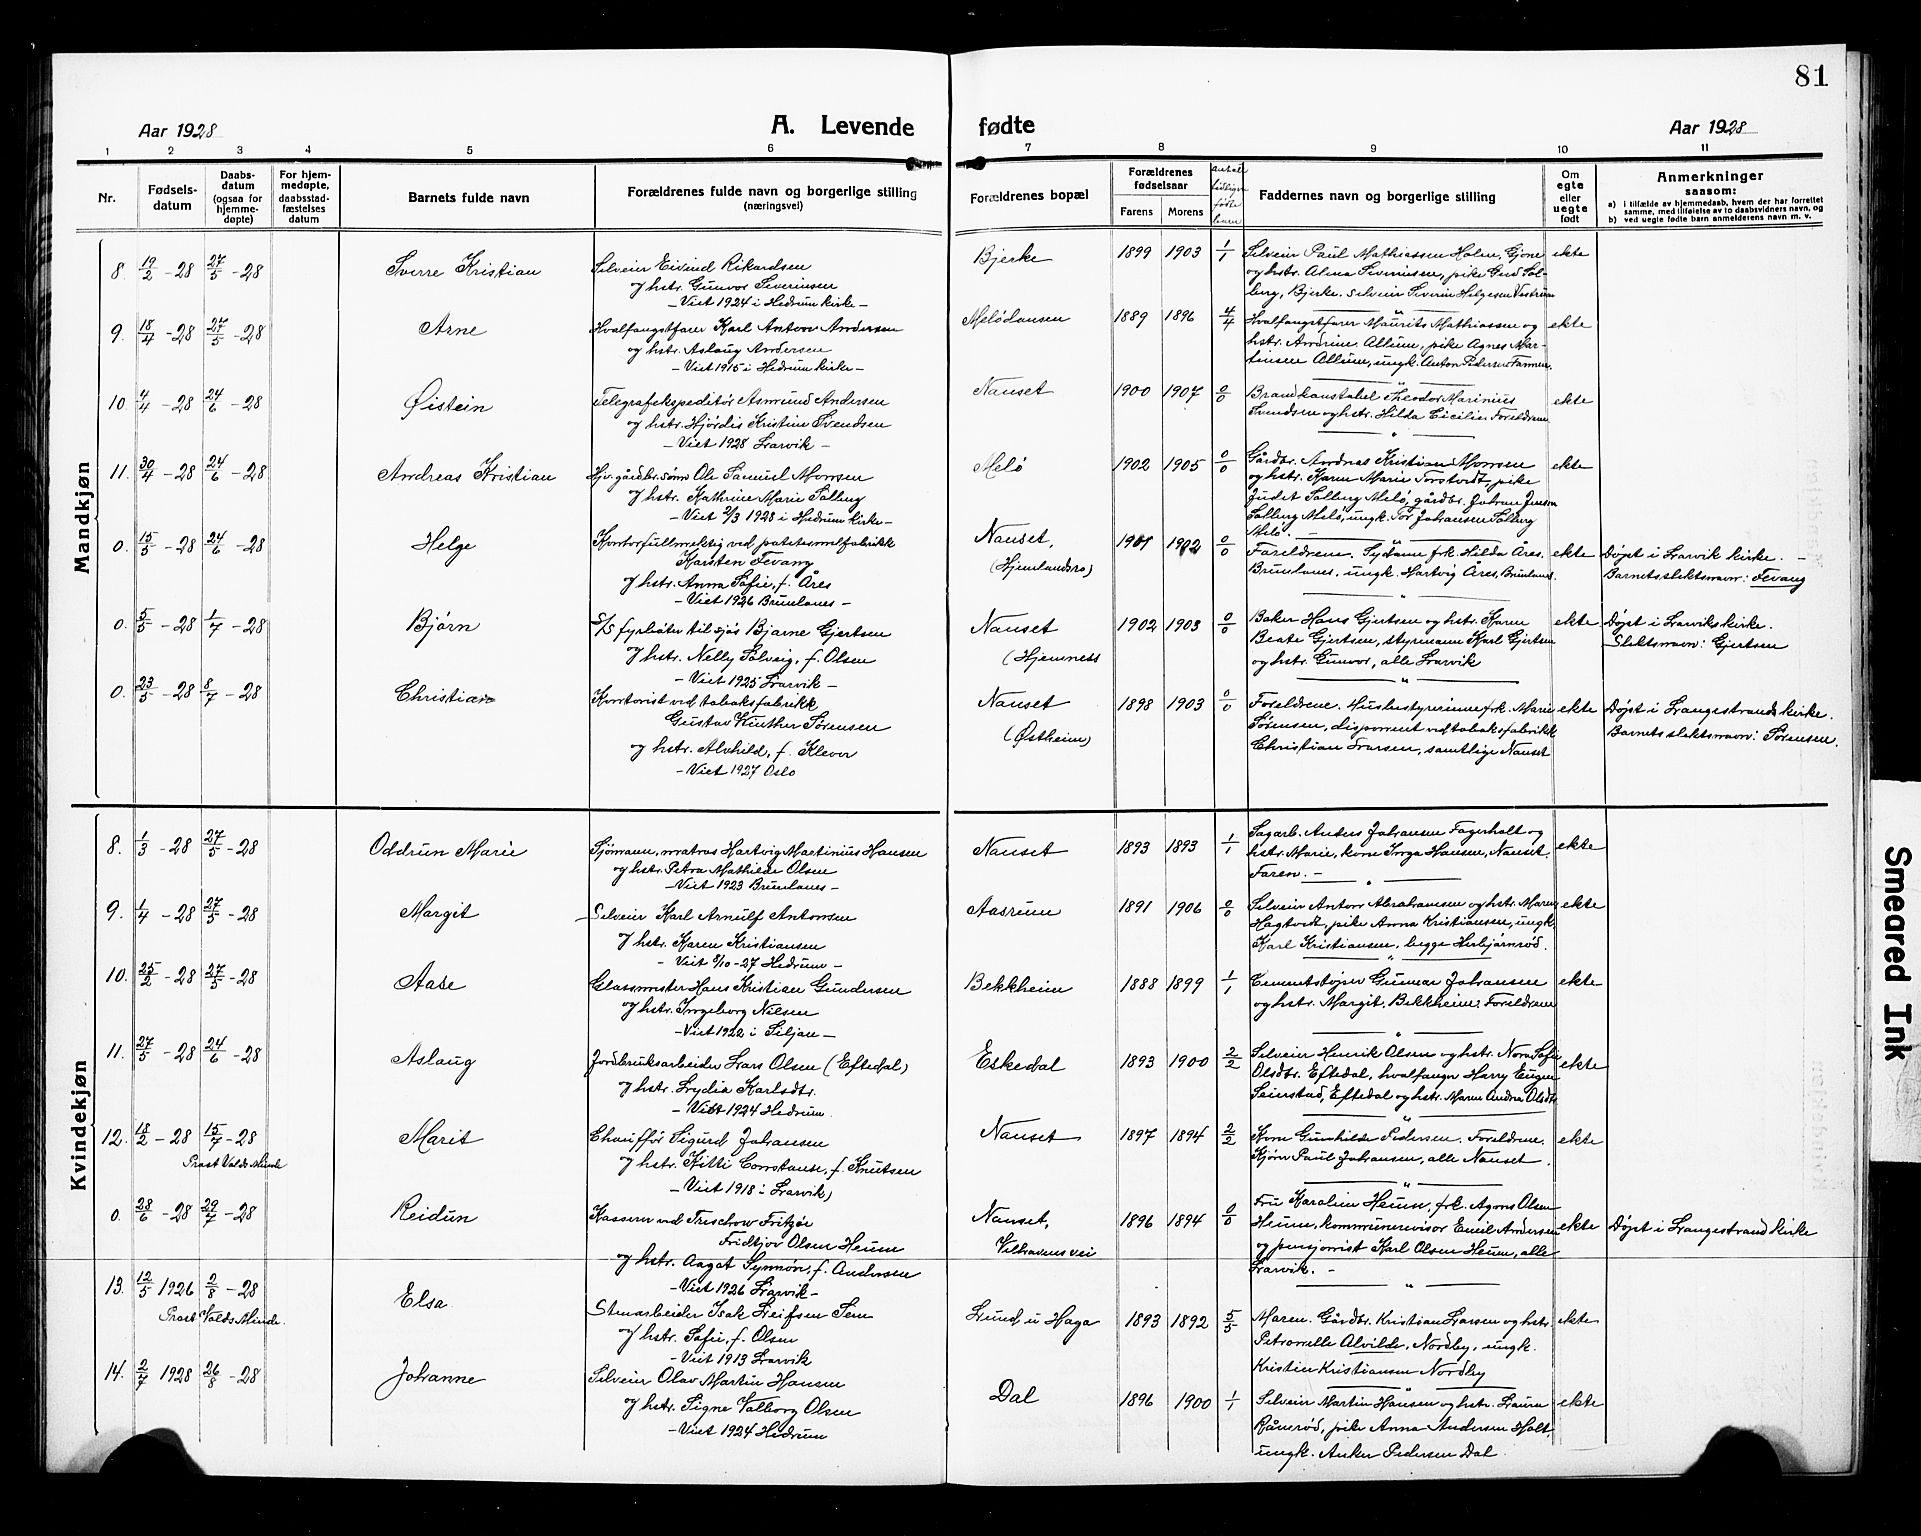 81
Aar 1928
A. Levende fødte
Aar 1928
1 2 3 4 5 6 7 8 9 10 11
Nr.
Fødsels-
datum
Daabs-
datum
(ogsaa for
hjemme-
døpte)
For hjem-
medøpte,
daabsstad-
fæstelses
datum
Barnets fulde navn
Forældrenes fulde navn og borgerlige stilling
(næringsvei)
Forældrenes bopæl
Forældrenes
fødselsaar
Farens Morens
Faddernes navn og borgerlige stilling
Om
egte
eller
uegte
født
Anmerkninger
saasom:
a) i tilfælde av hjemmedaab, hvem der har forrettet
samme, med tilføielse av to daabsvidners navn, og
b) ved uegte fødte barn anmelderens navn m. v.
Mandkjøn
8. 19/2 - 28 27/5 - 28 Sverre Kristian
Selveier Eivind Rikardsen
og hstr. Gunvor Severinsen
- Viet 1924 i Hedrum kirke -
Bjerke 1899 1903 1/1
Selveier Paul Mathiassen Holm, Gjone
og hstr. Alma Severinsen, pike Gerd Sol-
berg, Bjerke. Selveier Severin Helgesen Vestrum
ekte
9. 18/4 - 28 27/5 - 28 Arne
Hvalfangstfarer Karl Anton Andersen
og hstr. Aslaug Andersen
- Viet 1915 i Hedrum kirke -
Melødansen 1889 1896 4/4
Hvalfangstfarer Maurits Mathiassen og
hstr. Andrine Allum, pike Agnes Mar-
tinsen Allum, ungk. Anton Pedersen Farmen.
ekte
10. 4/4 - 28 24/6 - 28 Øistein
Telegrafekspeditør Asmund Andersen
og hstr. Hjørdis Kristine Svendsen
- Viet 1928 Larvik -
Nanset 1900 1907 0/0
Brandkonstabel Theodor Marinius
Svendsen og hstr. Hilda Cicilie. Foreldrene
ekte
11. 30/4 - 28 24/6 - 28 Andreas Kristian
Hjv. gårdbr. sønn Ole Samuel Momsen
og hstr. Kathrine Marie Solberg
- Viet 2/3 1928 i Hedrum kirke -
Melø 1902 1905 0/0
Gårdbr. Andreas Kristian Momsen
og hstr. Karen Marie Torstvedt, pike
Judet Solberg Melø, gårdbr. Johan Jensen
Solberg Melø, ungk. Tor Johansen Solberg
Melø.
ekte
0. 15/5 - 28 24/6 - 28 Helge
Kontorfullmektig ved patetermelfabrikk
Karsten Fevang
og hstr. Anna Sofie, f. Åres
- Viet 1926 Brunlanes -
Nanset,
(Hjemlandsro) 1901 1902 0/0
Foreldrene. Sydame frk. Hilda Åres,
Brunlanes, ungk. Hartvig Åres, Brunlanes.
ekte
Døpt i Larvik kirke. -
Barnets slektsnavn: Fevang
0. 5/5 - 28 1/7 - 28 Bjørn
S/S fyrbøter til sjøs Bjarne Gjertsen
og hstr. Nelly Solveig, f. Olsen
- Viet 1925 Larvik -
Nanset
(Hjemness 1902 1903 0/0
Baker Hans Gjertsen og hstr. Karen
Beate Gjertsen, styrmann Karl Gjertsen
og hstr. Gunvor, alle Larvik
ekte
Døpt i Larviks kirke.
Slektsnavn: Gjertsen
0. 23/5 - 28 8/7 - 28 Christian
Kontorist ved tobaksfabrikk
Gustav Kinther Sørensen
og hstr. Alvhild, f. Klever
- Viet 1927 Oslo
Nanset
(Østheim) 1898 1903 0/0
Foreldrene. Husbestyrerinne frk. Marie
Sørensen, disponent ved tobaksfabrikk
Christian Larsen, samtlige Nanset
ekte
Døpt i Langestrands kirke.
Barnets slektsnavn: Sørensen.
Kvindekjøn
8. 1/3 - 28 27/5 - 28 Oddrun Marie
Sjømann, matros Hartvig Martinius Hansen
og hstr. Petra Mathilde Olsen
- Viet 1923 Brunlanes -
Nanset 1893 1893 1/1
Sagarb. Anders Johansen Fagerholt og
hstr. Marie, kone Inga Hansen, Nanset.
Faren. -
ekte
9. 1/4 - 28 27/5 - 28 Margit
Selveier Karl Arnulf Antonsen
og hstr. Karen Kristiansen
- Viet 8/10 - 27 Hedrum -
Aasrum 1891 1906 0/0
Selveier Anton Abrahamsen og hstr. Maren
Hagtvedt, pike Anna Kristiansen, ungk.
Karl Kristiansen, begge Herbjørnrød.
ekte
10. 25/2 - 28 27/5 - 28 Aase
Glassmester Hans Kristian Gundersen
og hstr. Ingeborg Nilsen
- Viet 1922 i Siljan -
Bekkheim 1888 1899 1/1
Cementstøper Gunnar Johansen
og hstr. Margit. Bekkheim. Foreldrene
ekte
11. 27/5 - 28 24/6 - 28 Aslaug
Jordbruksarbeider Lars Olsen (Eftedal)
og hstr. Lydia Karlsdtr.
- Viet 1924 Hedrum.
Eskedal 1893 1900 2/2
Selveier Henrik Olsen og hstr. Nora Sofie
Olsdtr. Eftedal, hvalfanger Harry Eugen
Seierstad, Eftedal og hstr. Maren Andrea Olsdtr.
ekte
12. 18/2 - 28 15/7 - 28 Marit
Prost Valds Minde
Chauffør Sigurd Johansen
og hstr. Kitti Constanse, f. Knutsen
- Viet 1918 i Larvik)
Nanset 1897 1894 2/2
Kone Gunhilde Pedersen. Foreldrene.
Kjøm Paul Johansen, alle Nanset.
ekte
0. 28/6 - 28 29/7 - 28 Reidun
Kasserer ved Treschow Fritzøe
Fridtjov Olsen Heum
og hstr. Aagot Synnøve, f. Andersen
- Viet 1926 Larvik -
Nanset,
1896 1894 0/0
Fru Karoline Heum, frk. Agnes Olsen
Heum, kommunerevisor Emil Andersen
og pensjonist Karl Olsen Heum, alle
Larvik. -
ekte
Døpt i Langestrand kirke
13. 12/5 1926 2/8 - 28 Elsa
Prost Valds Minde.
Stenarbeider Isak Leifsen Sem
og hstr. Sofie, f. Olsen
- Viet 1913 Larvik
Lund u Haga 1893 1892 5/5
Maren. Gårdbr. Kristian Larsen og hstr.
Petronelle Alvilde, Nordby, ungk.
Kristian Kristiansen Nordby
ekte
14. 2/7 1928 26/8 - 28 Johanne
Selveier Olav Martin Hansen
og hstr. Signe Valborg Olsen
- Viet 1924 Hedrum
Dal 1896 1900 1/1
Selveier Martin Hansen og hstr. Laura
Råmsrød, pike Anna Andersen Holt,
ungk. Anker Pedersen Dal.
ekte
Smeared Ink